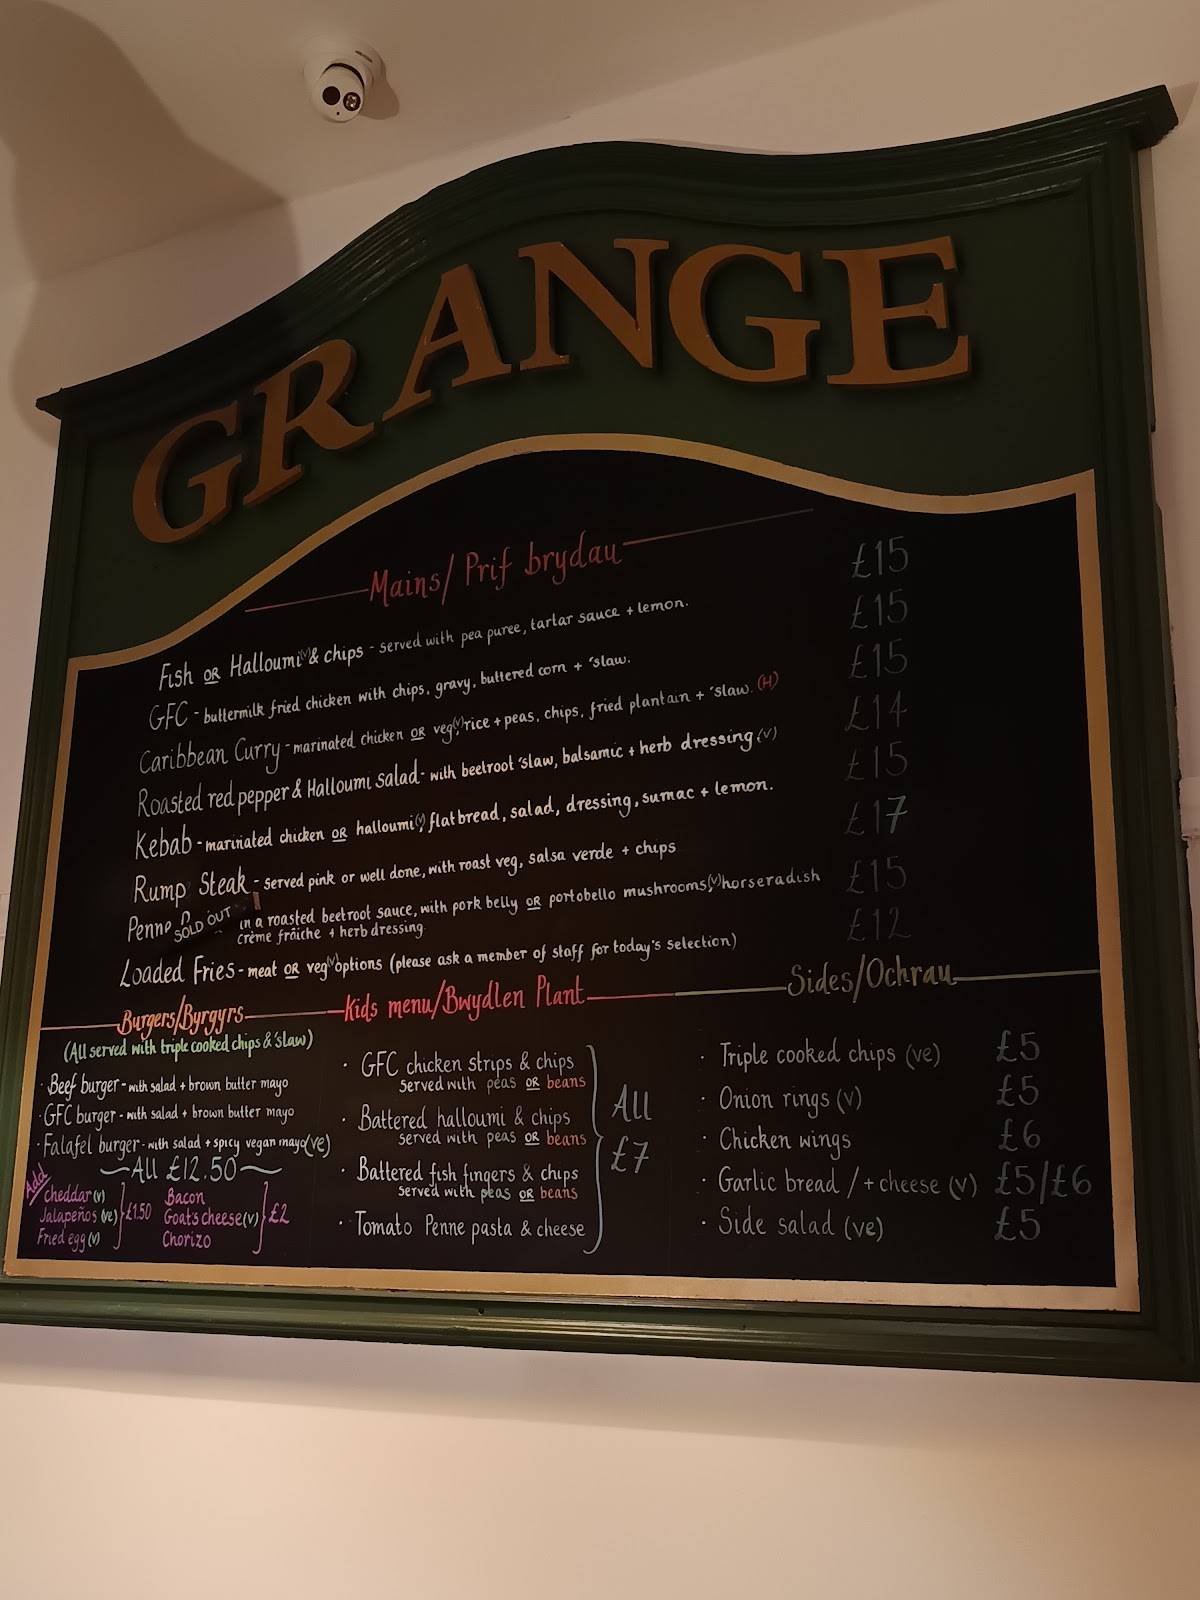 GRANGE
Mains/ Prif brydau
Fish OR Halloumi (v) & chips - served with pea puree, tartar sauce + lemon. £15
GFC - buttermilk fried chicken with chips, gravy, buttered corn + 'slaw. £15
Caribbean Curry - marinated chicken OR veg (v), rice + peas, chips, fried plantain + 'slaw. (H) £15
Roasted red pepper & Halloumi salad - with beetroot 'slaw, balsamic + herb dressing (v) £14
Kebab - marinated chicken OR halloumi (v), flatbread, salad, dressing, sumac + lemon. £15
Rump Steak - served pink or well done, with roast veg, salsa verde + chips £17
Penne SOLD OUT in a roasted beetroot sauce, with pork belly OR portobello mushrooms (v), horseradish £15
crème fraîche + herb dressing
Loaded Fries - meat OR veg (v) options (please ask a member of staff for today's selection) £12
Burgers/Byrgyrs
(All served with triple cooked chips & 'slaw)
· Beef burger - with salad + brown butter mayo
· GFC burger - with salad + brown butter mayo
· Falafel burger - with salad + spicy vegan mayo (ve)
All £12.50
Add
cheddar (v)
Jalapeños (ve)
Fried egg (v)
£1.50
Bacon
Goat's cheese (v)
Chorizo
£2
Kids menu/Bwydlen Plant
· GFC chicken strips & chips
served with peas OR beans
· Battered halloumi & chips
served with peas OR beans
· Battered fish fingers & chips
served with peas OR beans
· Tomato Penne pasta & cheese
All
£7
Sides/Ochrau
· Triple cooked chips (ve) £5
· Onion rings (v) £5
· Chicken wings £6
· Garlic bread / + cheese (v) £5/£6
· Side salad (ve) £5